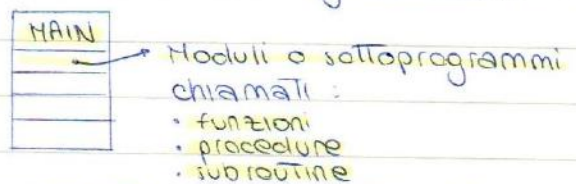 MAIN
Moduli o sottoprogrammi
chiamati :
• funzioni
• procedure
• subroutine